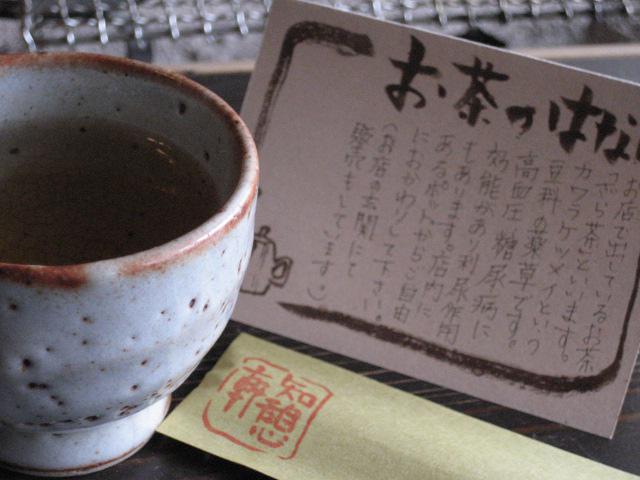 お茶のはなし
お店で出しているお茶
「ざら茶」といいます。
カワラケツメイという
豆科の薬草です。
高血圧、糖尿病に
効能があり利尿作用
もあります。店内に
あるポットからご自由
におかわりして下さい。
(お店の玄関にて
販売もしています。)
知憩軒